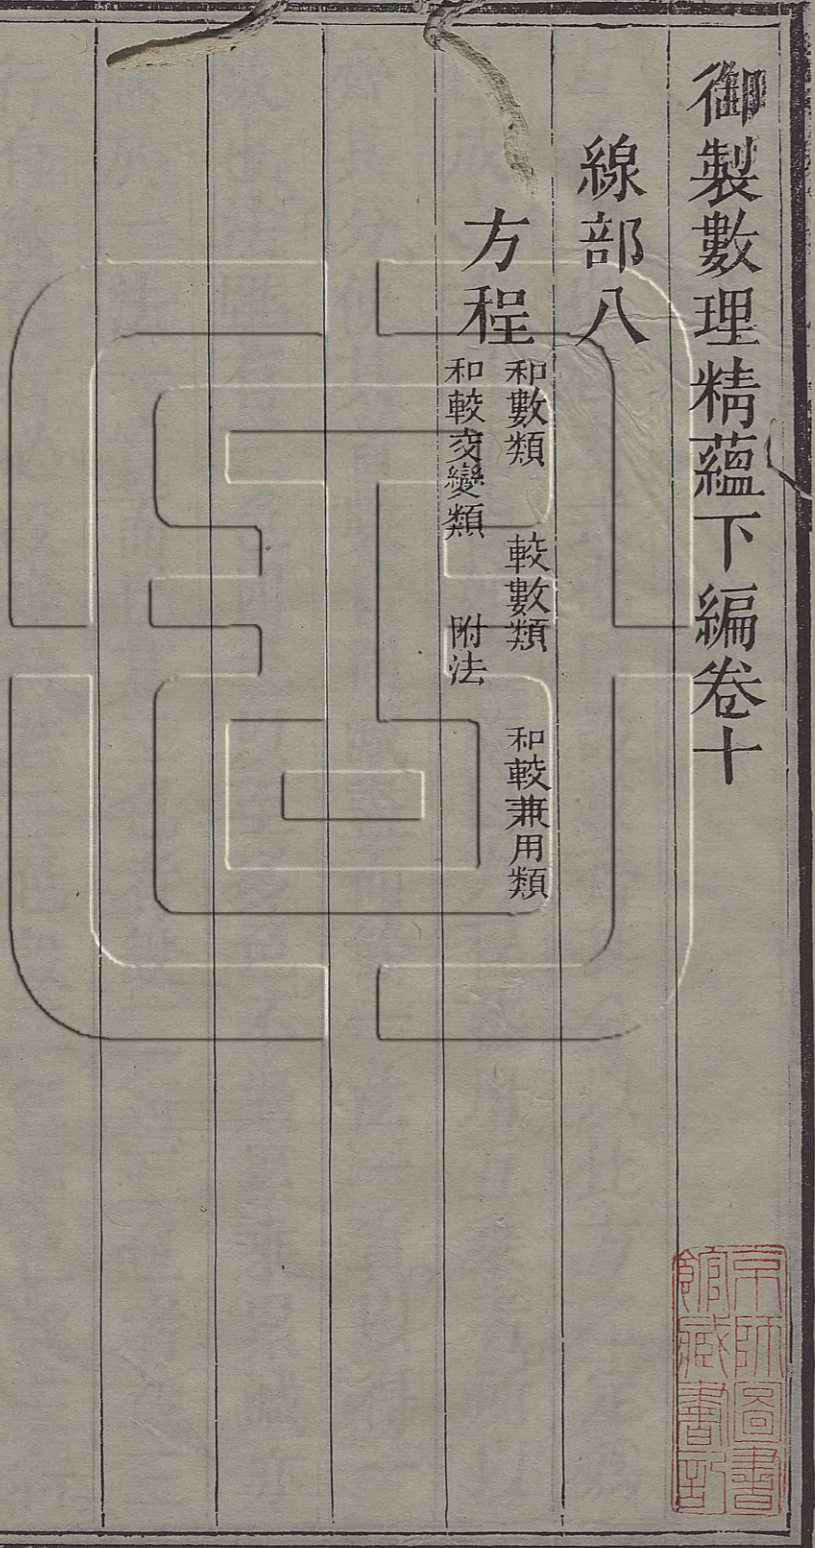 御製數理精蘊下編卷十
線部八
方程
和數類 較數類 和較兼用類
和較交變類 附法
京師圖書
館藏書記